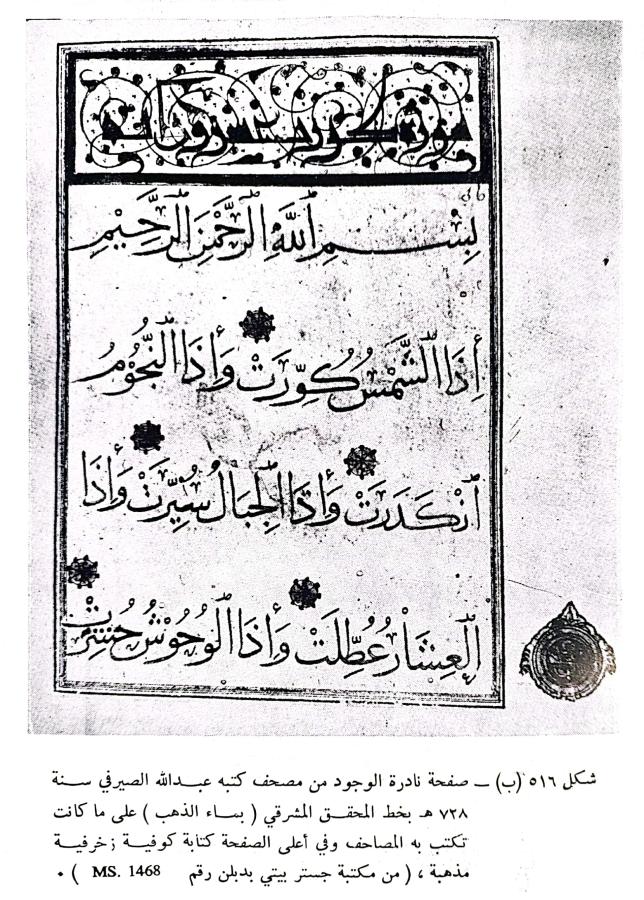 سورة التكوير عشرون وتسع آيات
بِسْمِ اللَّهِ الرَّحْمَٰنِ الرَّحِيمِ
إِذَا الشَّمْسُ كُوِّرَتْ وَإِذَا النُّجُومُ
انْكَدَرَتْ وَإِذَا الْجِبَالُ سُيِّرَتْ وَإِذَا
الْعِشَارُ عُطِّلَتْ وَإِذَا الْوُحُوشُ حُشِرَتْ
شكل ٥١٦ (ب) ــ صفحة نادرة الوجود من مصحف كتبه عبدالله الصيرفي سنة
٧٢٨ هـ بخط المحقق المشرقي ( بماء الذهب ) على ما كانت
تكتب به المصاحف وفي أعلى الصفحة كتابة كوفية زخرفية
مذهبة ، ( من مكتبة جستر بيتي بدبلن رقم MS. 1468 ) ٠